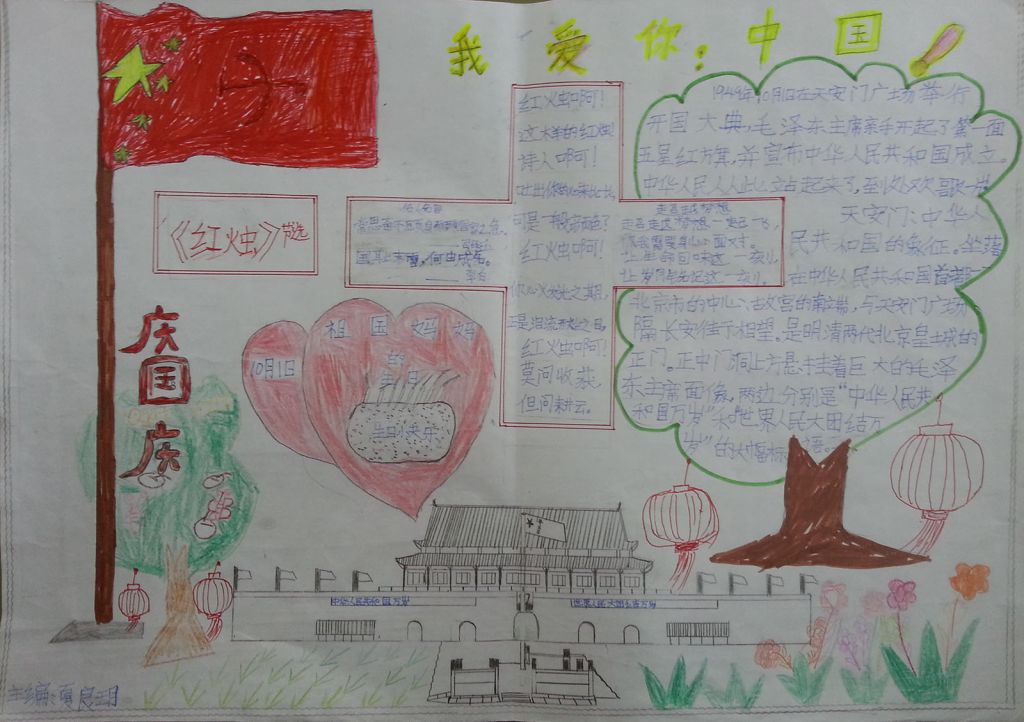 我爱你：中国！
《红烛》节选
庆
国
庆
10月1日
祖国妈妈
生日
生日快乐
红烛啊！
这样红的烛！
诗人啊！
吐出你的心来比比，
可是一般颜色？
红烛啊！
是泪流开始之日。
红烛啊！
莫问收获，
但问耕云。
李白
1949年，10月1日在天安门广场举行
开国大典，毛泽东主席亲手升起了第一面
五星红旗，并宣布中华人民共和国成立。
中华人民从此站起来了，到处欢歌
天安门：中华人
民共和国的象征。坐落
在中华人民共和国首都
北京市的中心、故宫的南端，与天安门广场
隔长安街下相望。是明清两代北京皇城的
正门。正中门洞上方悬挂着巨大的毛泽
东主席画像，两边分别是“中华人民共
和国万岁”和“世界人民大团结万
岁”的大幅标语。
中华人民共和国万岁
世界人民大团结万岁
主编：